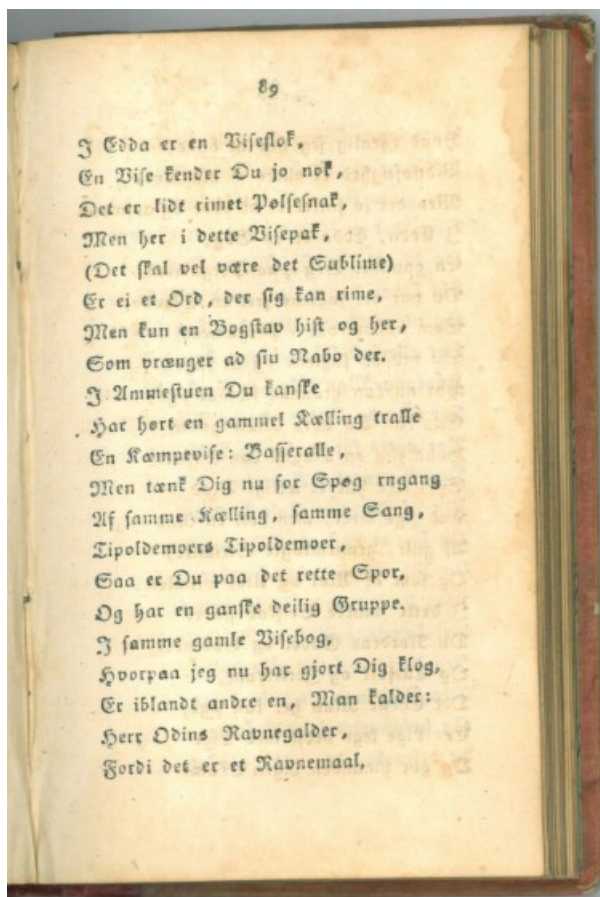 89
I Edda er en Viseflok,
En Vise kender Du jo nok,
Det er lidt rimet Pølsesnak,
Men her i dette Visepak,
(Det skal vel være det Sublime)
Er ei et Ord, der sig kan rime,
Men kun en Bogstav hist og her,
Som vrænger ad siu Nabo der.
I Ammestuen Du kanske
Har hørt en gammel Kælling tralle
En Kæmpevise: Basseralle,
Men tænk Dig nu for Spøg engang
Af samme Kælling, samme Sang,
Tipoldemoers Tipoldemoer,
Saa er Du paa det rette Spor,
Og har en ganske deilig Gruppe.
I samme gamle Visebog,
Hvorpaa jeg nu har gjort Dig klog,
Er iblandt andre en, Man kalder:
Herr Odins Ravnegalder,
Fordi det er et Ravnemaal,